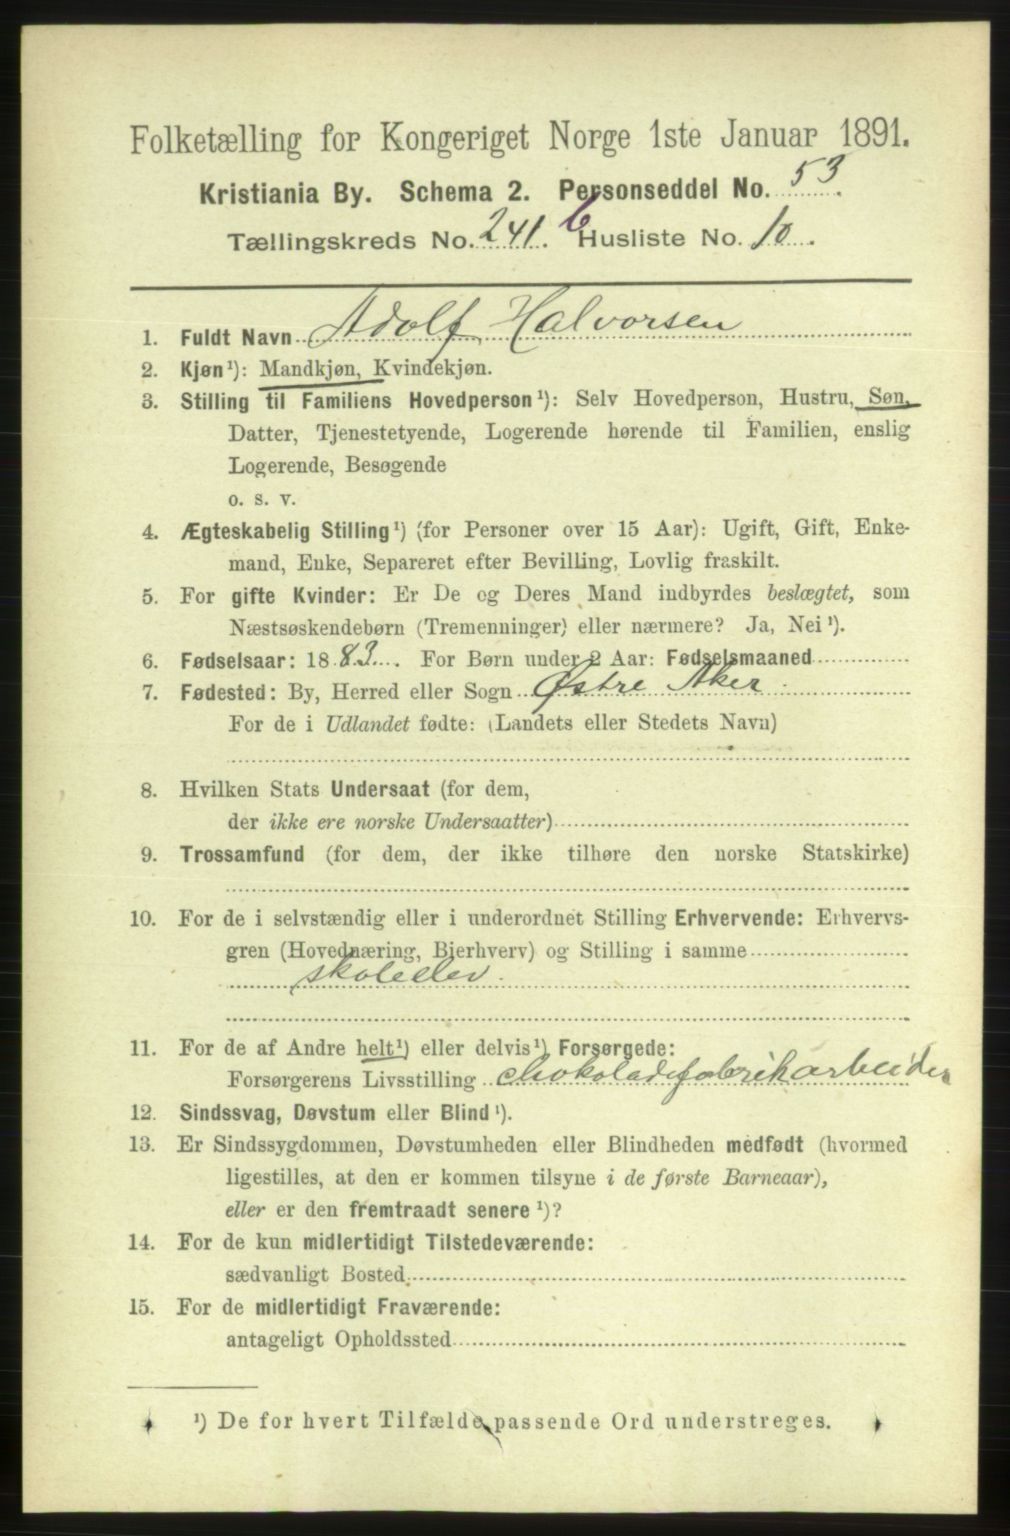 Folketælling for Kongeriget Norge 1ste Januar 1891.
Kristiania By. Schema 2. Personseddel No. 53.
Tællingskreds No. 241. b Husliste No. 10.
1. Fuldt Navn Adolf Halvorsen
2. Kjøn¹): Mandkjøn, Kvindekjøn.
3. Stilling til Familiens Hovedperson¹): Selv Hovedperson, Hustru, Søn,
Datter, Tjenestetyende, Logerende hørende til Familien, enslig
Logerende, Besøgende
o. s. v.
4. Ægteskabelig Stilling¹) (for Personer over 15 Aar): Ugift, Gift, Enke-
mand, Enke, Separeret efter Bevilling, Lovlig fraskilt.
5. For gifte Kvinder: Er De og Deres Mand indbyrdes beslægtet, som
Næstsøskendebørn (Tremenninger) eller nærmere? Ja, Nei¹).
6. Fødselsaar: 1883. For Børn under 2 Aar: Fødselsmaaned
7. Fødested: By, Herred eller Sogn Østre Aker.
For de i Udlandet fødte: (Landets eller Stedets Navn)
8. Hvilken Stats Undersaat (for dem,
der ikke ere norske Undersaatter)
9. Trossamfund (for dem, der ikke tilhøre den norske Statskirke)
10. For de i selvstændig eller i underordnet Stilling Erhvervende: Erhvervs-
gren (Hovednæring, Bierhverv) og Stilling i samme
skoleelev.
11. For de af Andre helt¹) eller delvis¹) Forsørgede:
Forsørgerens Livsstilling chokoladefabrikarbeider
12. Sindssvag, Døvstum eller Blind¹).
13. Er Sindssygdommen, Døvstumheden eller Blindheden medfødt (hvormed
ligestilles, at den er kommen tilsyne i de første Barneaar),
eller er den fremtraadt senere¹)?
14. For de kun midlertidigt Tilstedeværende:
sædvanligt Bosted
15. For de midlertidigt Fraværende:
antageligt Opholdssted
¹) De for hvert Tilfælde passende Ord understreges.